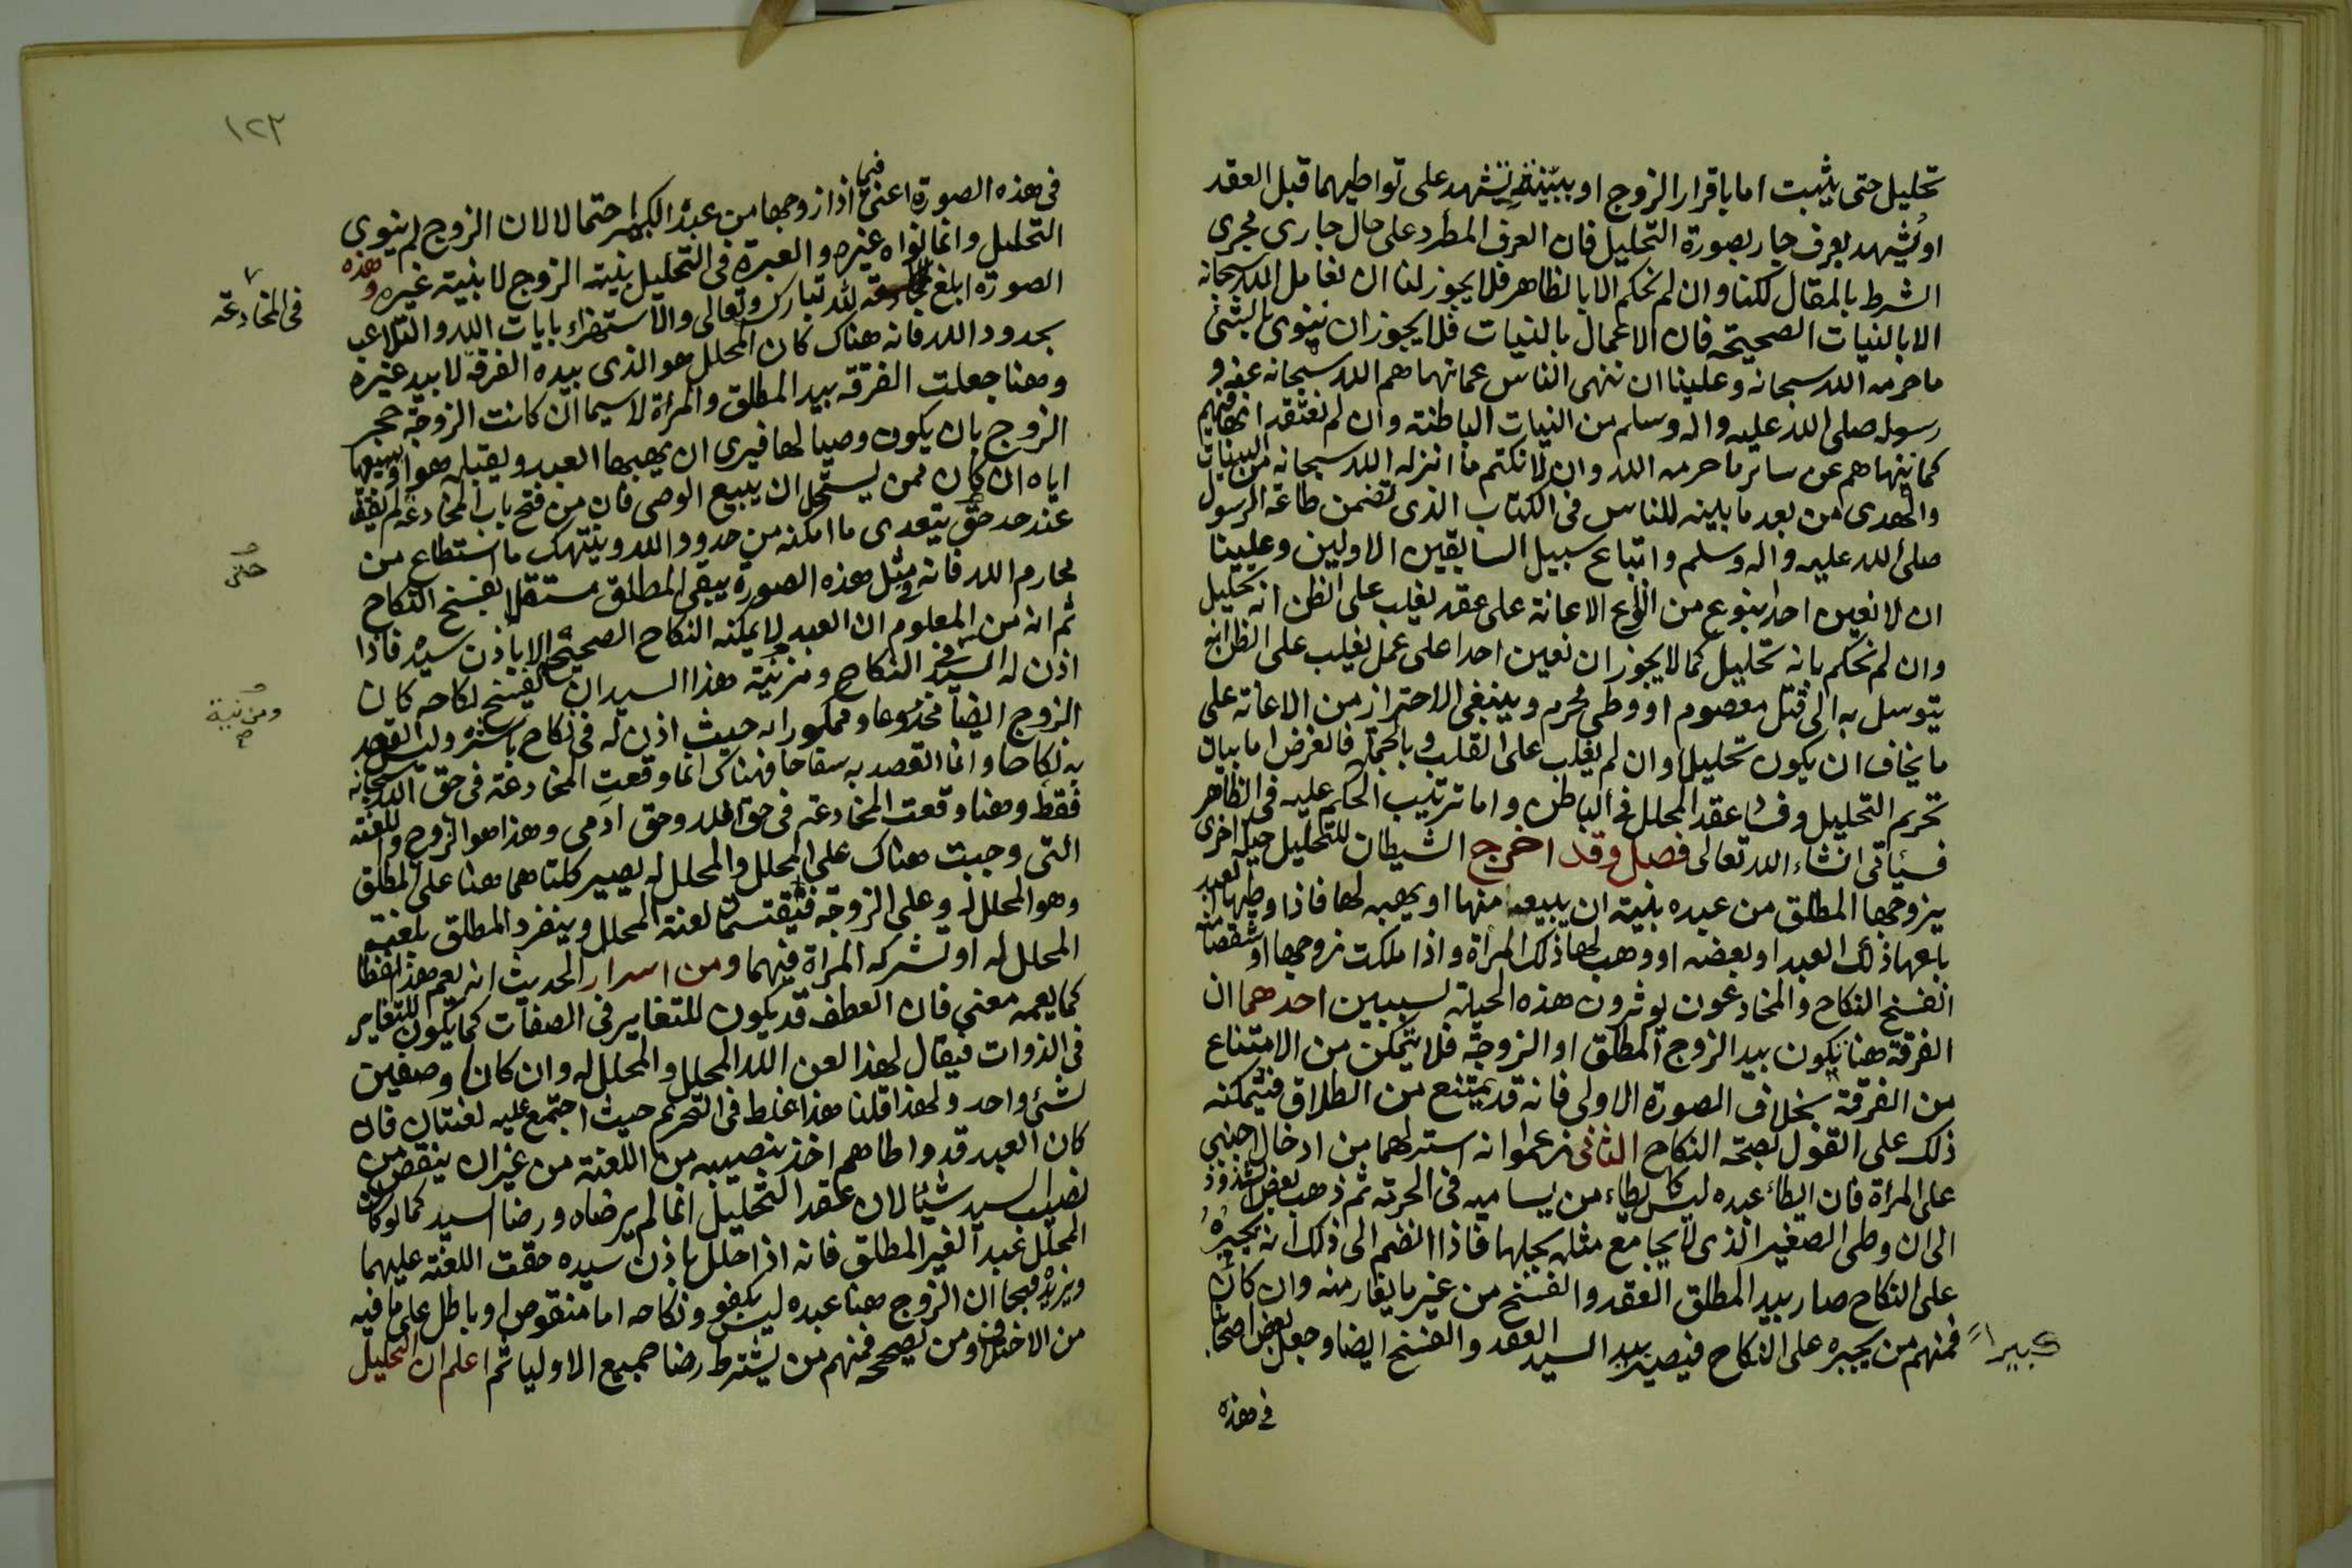 تحليل حتى يثبت اما باقرار الزوج او ببينة تشهد على تواطيهما قبل العقد
او يشهد بعرف جار بصورة التحليل فان العرف المطرد على حال جارى مجرى
الشرط بالمقال لكنا وان لم نحكم الا بالظاهر فلا يجوز لنا ان نعامل الله سبحانه
الا بالنيات الصحيحة فان الاعمال بالنيات فلا يجوز ان ننوى بالشئ
ما حرمه الله سبحانه وعلينا ان ننهى الناس عما نهاهم الله سبحانه عنه و
رسوله صلى الله عليه واله وسلم من النيات الباطنة وان لم نعتقد انها فيهم
كما ننهاهم عن سائر ما حرمه الله وان لا نكتم ما انزله الله سبحانه من البينات
والهدى من بعد ما بينه للناس فى الكتاب الذى تضمن طاعة الرسول
صلى الله عليه واله وسلم واتباع سبيل السابقين الاولين وعلينا
ان لا نعين احدا بنوع من انواع الاعانة على عقد يغلب على الظن انه تحليل
وان لم نحكم بانه تحليل كما لا يجوز ان نعين احدا على عمل يغلب على الظن انه
يتوسل به الى قتل معصوم او وطى محرم وينبغى الاحتراز من الاعانة على
ما يخاف ان يكون تحليلا وان لم يغلب على القلب وبالجملة فالغرض اما بيان
تحريم التحليل وفساد عقد المحلل فى الباطن واما ترتيب الحكم عليه فى الظاهر
فسيأتى انشاء الله تعالى فصل وقد اخرج الشيطان للتحليل حيلا اخرى
يزوجها المطلق من عبده بنية ان يبيعه منها او يهبه لها فاذا وطيها العبد
باعها ذلك العبد او بعضه او وهب لها ذلك المرأة واذا ملكت زوجها او شقصا منه
انفسخ النكاح والمخادعون يوثرون هذه الحيلة لسببين احدهما ان
الفرقة هنا يكون بيد الزوج المطلق او الزوجة فلا يتمكن من الامتناع
من الفرقة بخلاف الصورة الاولى فانه قد يمتنع من الطلاق فيتمكنه
ذلك على القول بصحة النكاح الثانى زعموا انه استر لهما من ادخال اجنبى
على المرأة فان ايطاء عبده ليس كايطاء من يساميه فى الحرية ثم ذهب بعض الشذوذ
الى ان وطى الصغير الذى لا يجامع مثله يحلها فاذا انضم الى ذلك انه يجبره
على النكاح صار بيد المطلق العقد والفسخ من غير ما يفارمنه وان كان
كبيرا
فمنهم من يجبره على النكاح فيصير بيد السيد العقد والفسخ ايضا وجعل بعض اصحابنا
فى هذه
١٢٣
فى هذه الصورة اعنى فيما اذا زوجها من عبده الكبير احتمالا لان الزوج لم ينوى
التحليل وانما نواه غيره والعبرة فى التحليل بنية الزوج لا بنية غيره وهذه
الصورة ابلغ فى المخادعة لله تبارك وتعالى والاستهزاء بايات الله والتلاعب
فى المخادعة
بحدود الله فانه هناك كان المحلل هو الذى بيده الفرقة لا بيد غيره
وهنا جعلت الفرقة بيد المطلق والمرأة لا سيما ان كانت الزوجة حجر
الزوج بان يكون وصيا لها فيرى ان يهبها العبد ويقبله هو او يبيعها
اياه ان كان ممن يستحل ان يبيع الوصى فان من فتح باب المخادعة لم يقف
عند حد حتى يتعدى ما امكنه من حدود الله وينتهك ما استطاع من
حتى
محارم الله فانه فى مثل هذه الصورة يبقى المطلق مستقلا بفسخ النكاح
ثم انه من المعلوم ان العبد لا يمكنه النكاح الصحيح الا باذن سيده فاذا
اذن له السيد فى النكاح ومن نية هذا السيد ان يفسخ نكاحه كان
ومن نية صح
الزوج ايضا مخدوعا وممكورا به حيث اذن له فى نكاح باشره وليس القصد
به نكاحا وانما القصد به سفاحا فهناك انما وقعت المخادعة فى حق الله سبحانه
فقط وهنا وقعت المخادعة فى حق الله وحق ادمى وهذا هو الزوج واللعنة
التى وجبت هناك على المحلل والمحلل له يصير كلتاهما هنا على المطلق
وهو المحلل له وعلى الزوجة فيقتسما لعنة المحلل وينفرد المطلق بلعنة
المحلل له او تشركه المرأة فيهما ومن اسرار الحديث انه يعم هذا لفظا
كما يعمه معنى فان العطف قد يكون للتغاير فى الصفات كما يكون للتغاير
فى الذوات فيقال لهذا لعن الله المحلل والمحلل له وان كان وصفين
لشئ واحد ولهذا قلنا هذا غلط فى التحريم حيث اجتمع عليه لعنتان فان
كان العبد قد واطاهم اخذ بنصيبه من اللعنة من غير ان ينقص من
نصيب السيد شيئا لان عقد التحليل انما لم يرضاه ورضا السيد كما لو كان
المحلل عبدا لغير المطلق فانه اذا حلل باذن سيده حقت اللعنة عليهما
ويزيده قبحا ان الزوج هنا عبده ليس بكفو ونكاحه اما منقوص او باطل على ما فيه
من الاختلاف ومن يصححه فمنهم من يشترط رضا جميع الاوليا ثم اعلم ان التحليل